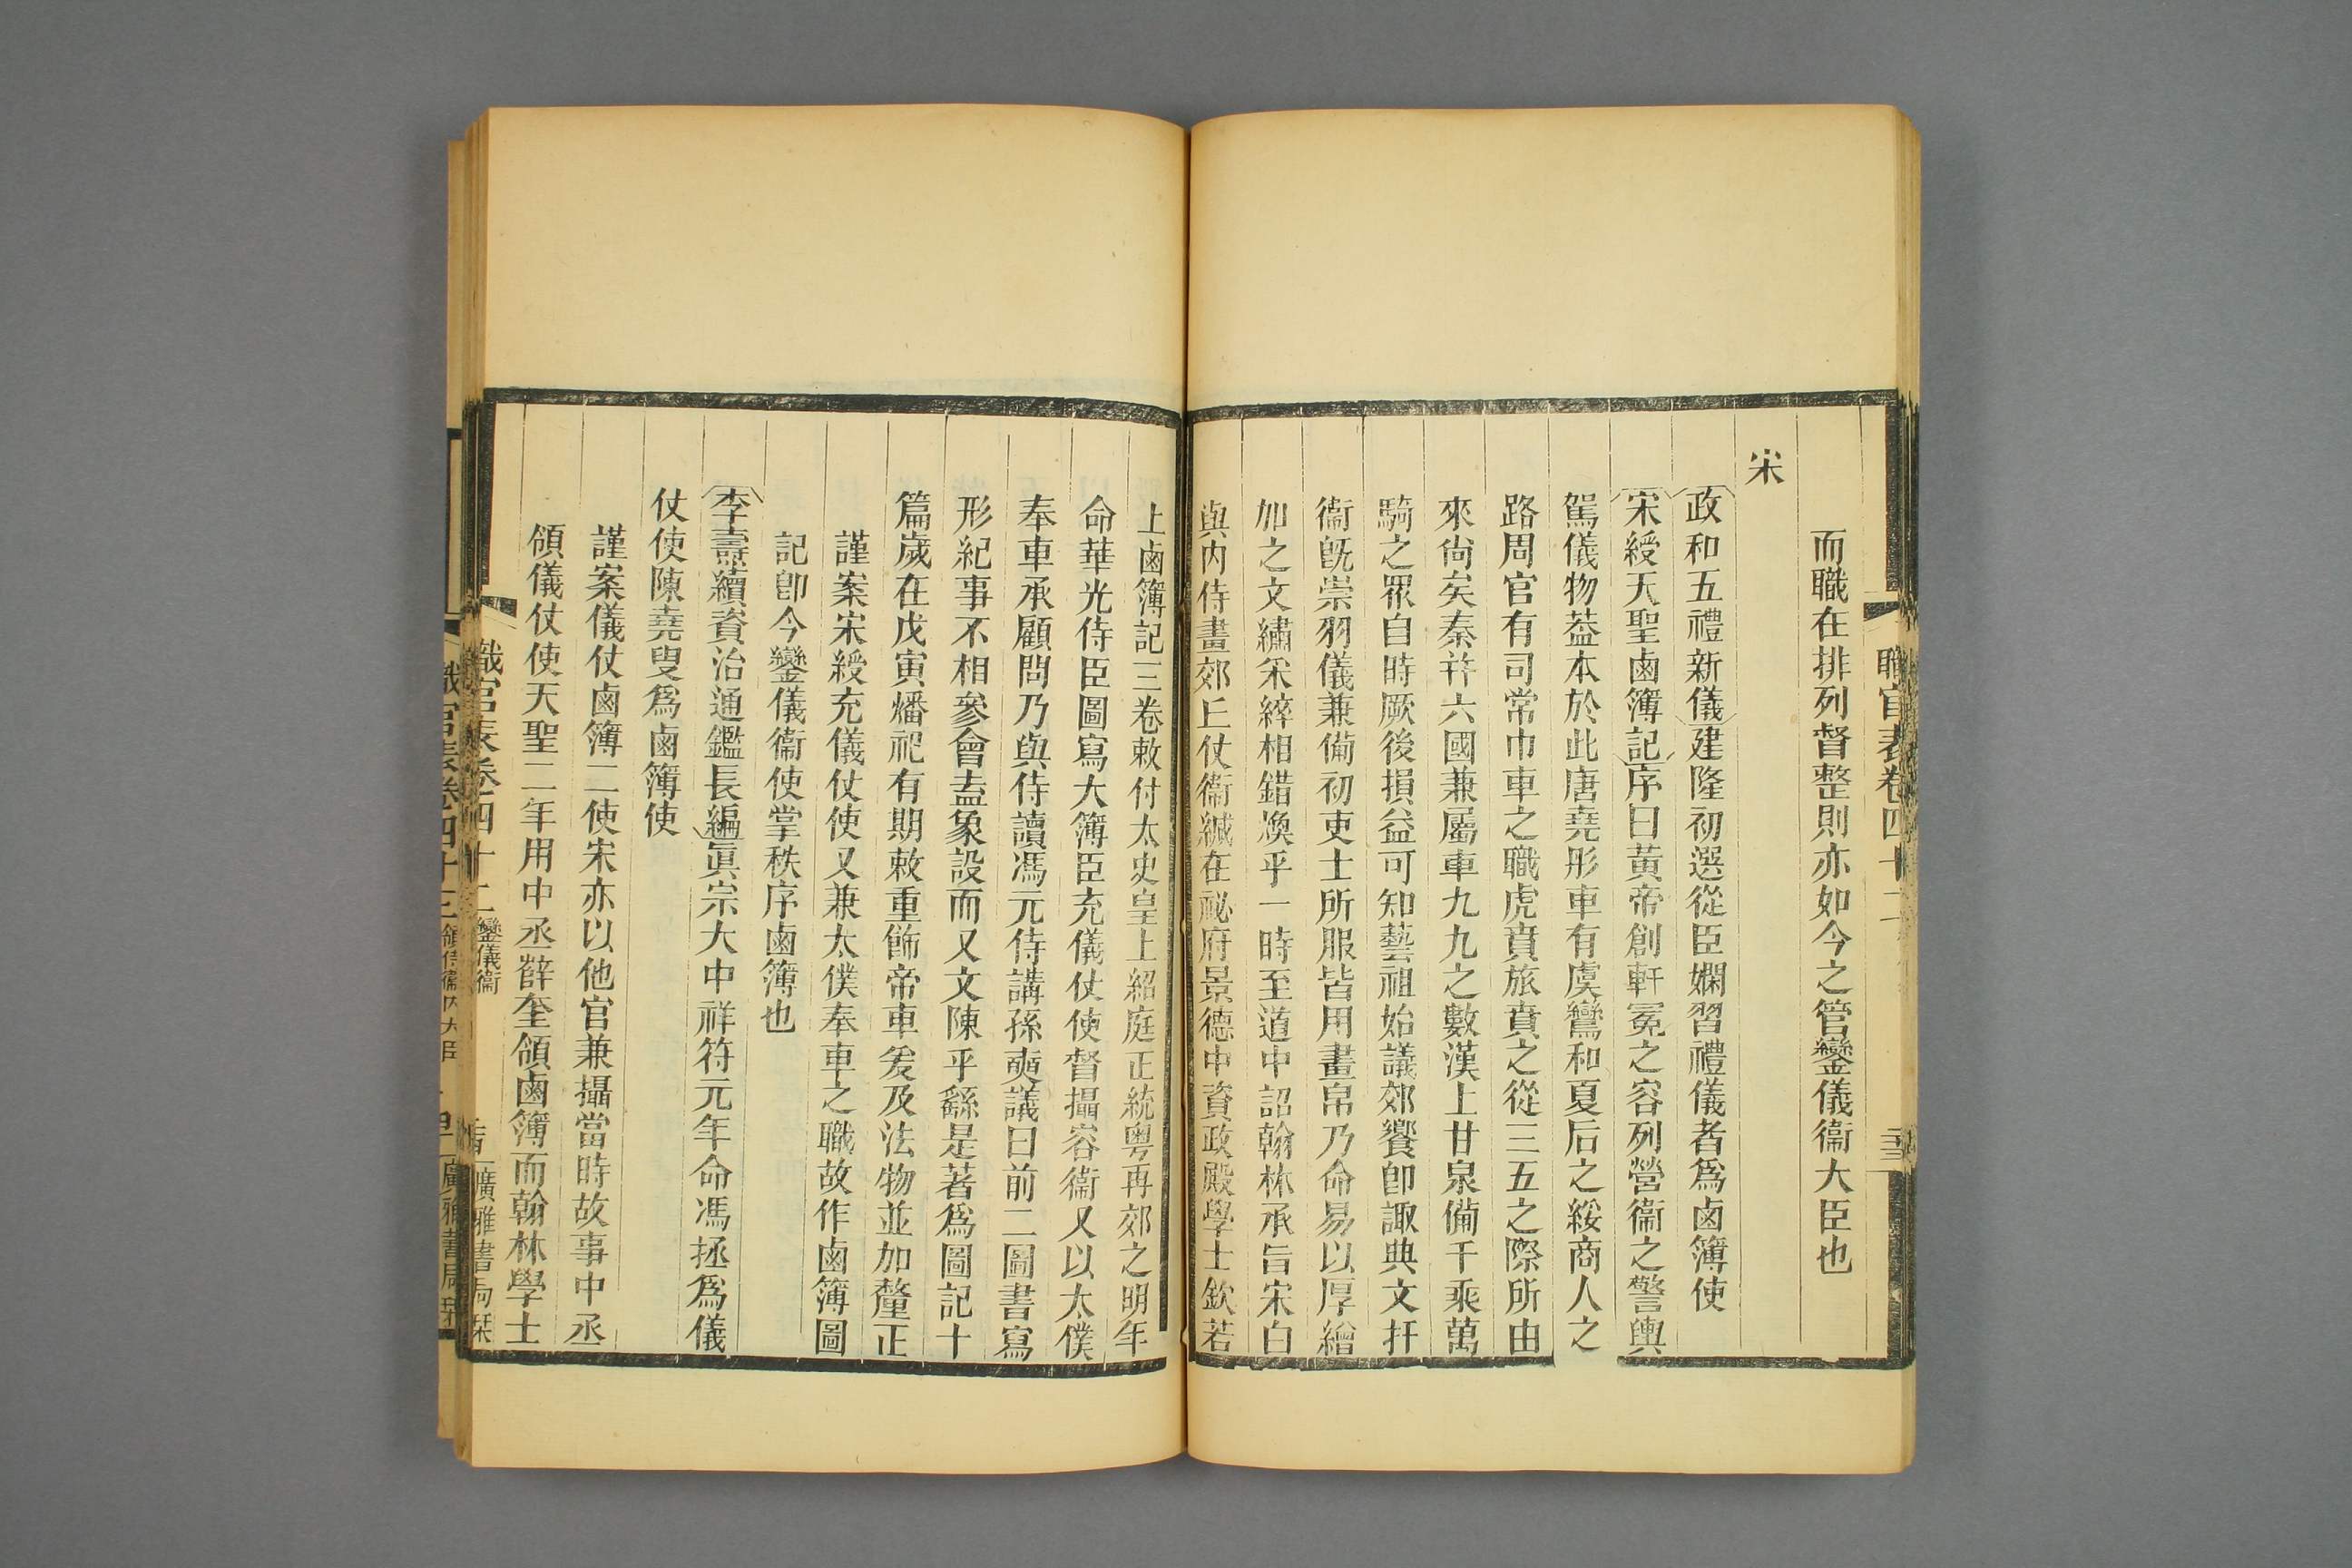 職官表卷四十二
而職在排列督整則亦如今之管鑾儀衞大臣也
宋
政和五禮新儀建隆初選從臣嫻習禮儀者爲鹵簿使
宋綬天聖鹵簿記序曰黃帝創軒冕之容列營衞之警輿
駕儀物葢本於此唐堯彤車有虞鸞和夏后之綏商人之
路周官有司常巾車之職虎賁旅賁之從三五之際所由
來尙矣秦幷六國兼屬車九九之數漢上甘泉備千乘萬
騎之眾自時厥後損益可知藝祖始議郊饗卽諏典文扞
衞旣崇羽儀兼備初吏士所服皆用畫帛乃命易以厚繒
加之文繡采綷相錯煥乎一時至道中詔翰林承旨宋白
與內侍畫郊丘仗衞緘在祕府景德中資政殿學士欽若
上鹵簿記三卷敕付太史皇上紹庭正統粤再郊之明年
命華光侍臣圖寫大簿臣充儀仗使督攝容衞又以太僕
奉車承顧問乃與侍讀馮元侍講孫奭議曰前二圖書寫
形紀事不相參會盍象設而又文陳乎繇是著爲圖記十
篇歲在戊寅燔祀有期敕重飾帝車爰及法物並加釐正
謹案宋綬充儀仗使又兼太僕奉車之職故作鹵簿圖
記卽今鑾儀衞使掌秩序鹵簿也
李燾續資治通鑑長編眞宗大中祥符元年命馮拯爲儀
仗使陳堯叟爲鹵簿使
謹案儀仗鹵簿二使宋亦以他官兼攝當時故事中丞
領儀仗使天聖二年用中丞薛奎領鹵簿而翰林學士
職官表卷四十二 鑾儀衞 廣雅書局栞
職官表卷四十三 領侍衞內大臣 廣雅書局栞